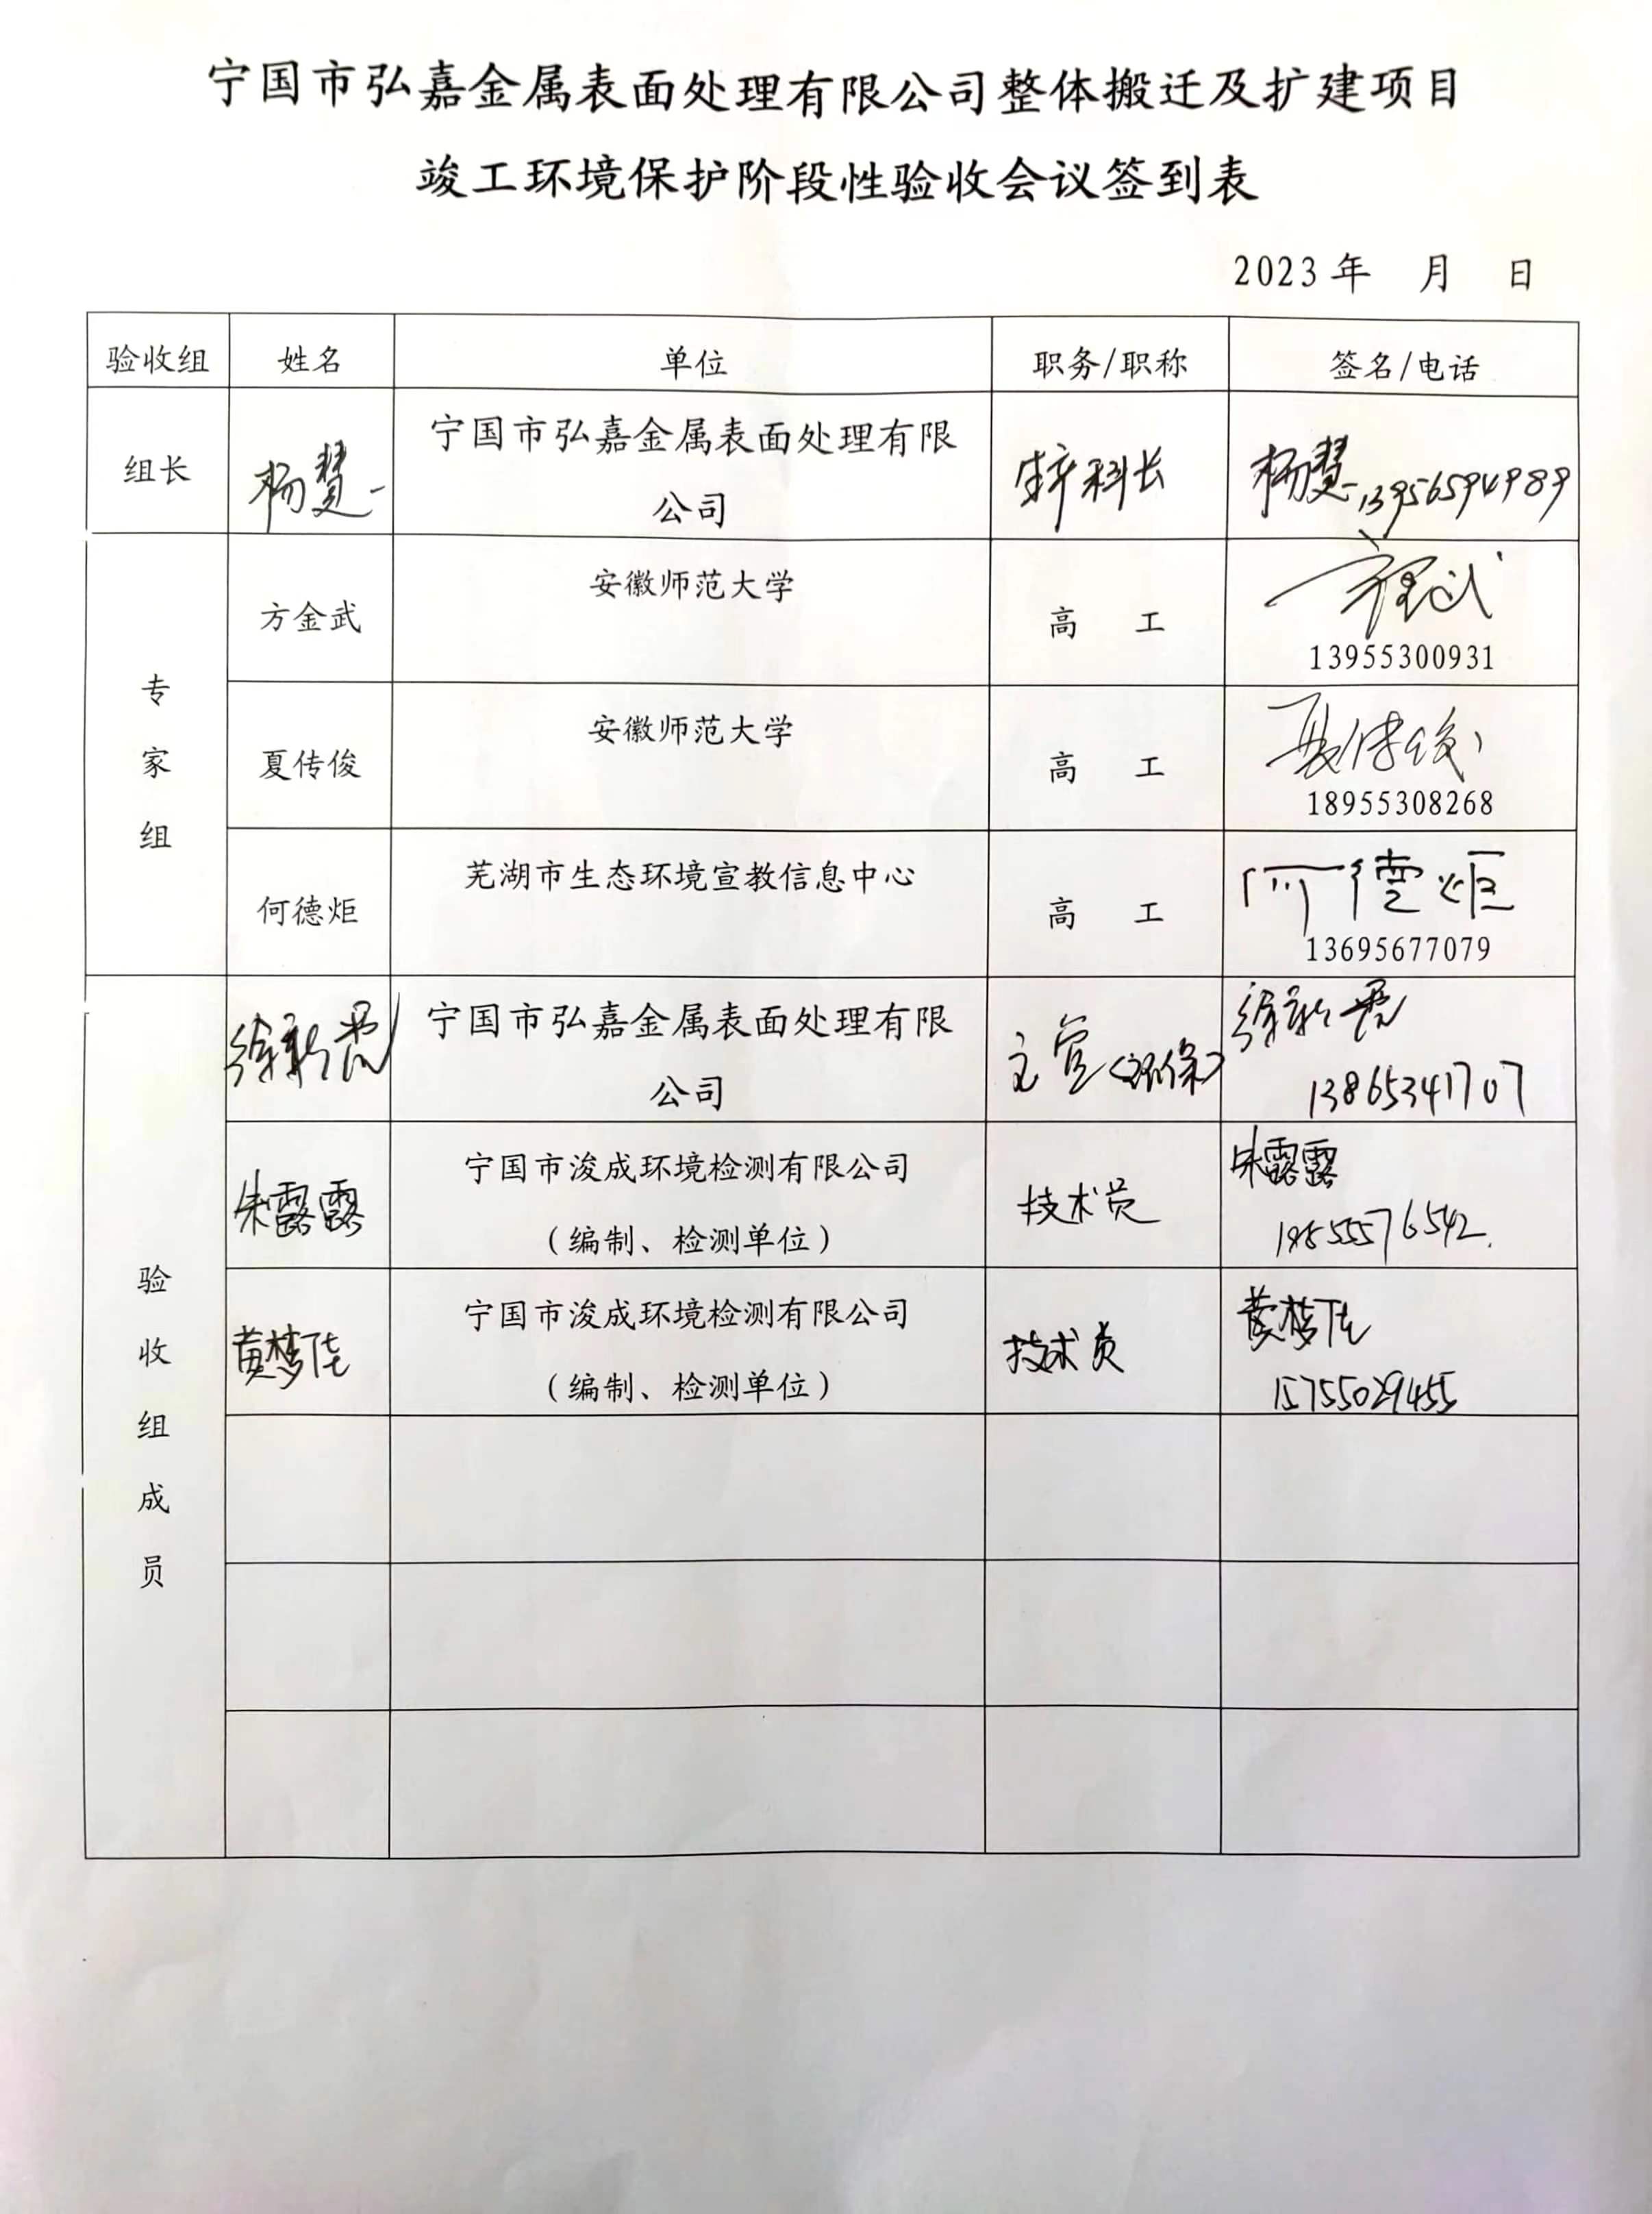 宁国市弘嘉金属表面处理有限公司整体搬迁及扩建项目
竣工环境保护阶段性验收会议签到表
2023年 月 日
验收组 姓名 单位 职务/职称 签名/电话
组长 杨慧 宁国市弘嘉金属表面处理有限
公司 科长 杨慧 13956594989
专家组
方金武 安徽师范大学 高 工 方金武
13955300931
夏传俊 安徽师范大学 高 工 夏传俊
18955308268
何德炬 芜湖市生态环境宣教信息中心 高 工 何德炬
13695677079
验收组成员
徐 宁国市弘嘉金属表面处理有限
公司 主管(环保) 徐
13865341707
朱露露 宁国市浚成环境检测有限公司
(编制、检测单位) 技术员 朱露露
黄梦佳 宁国市浚成环境检测有限公司
(编制、检测单位) 技术员 黄梦佳
15755029455